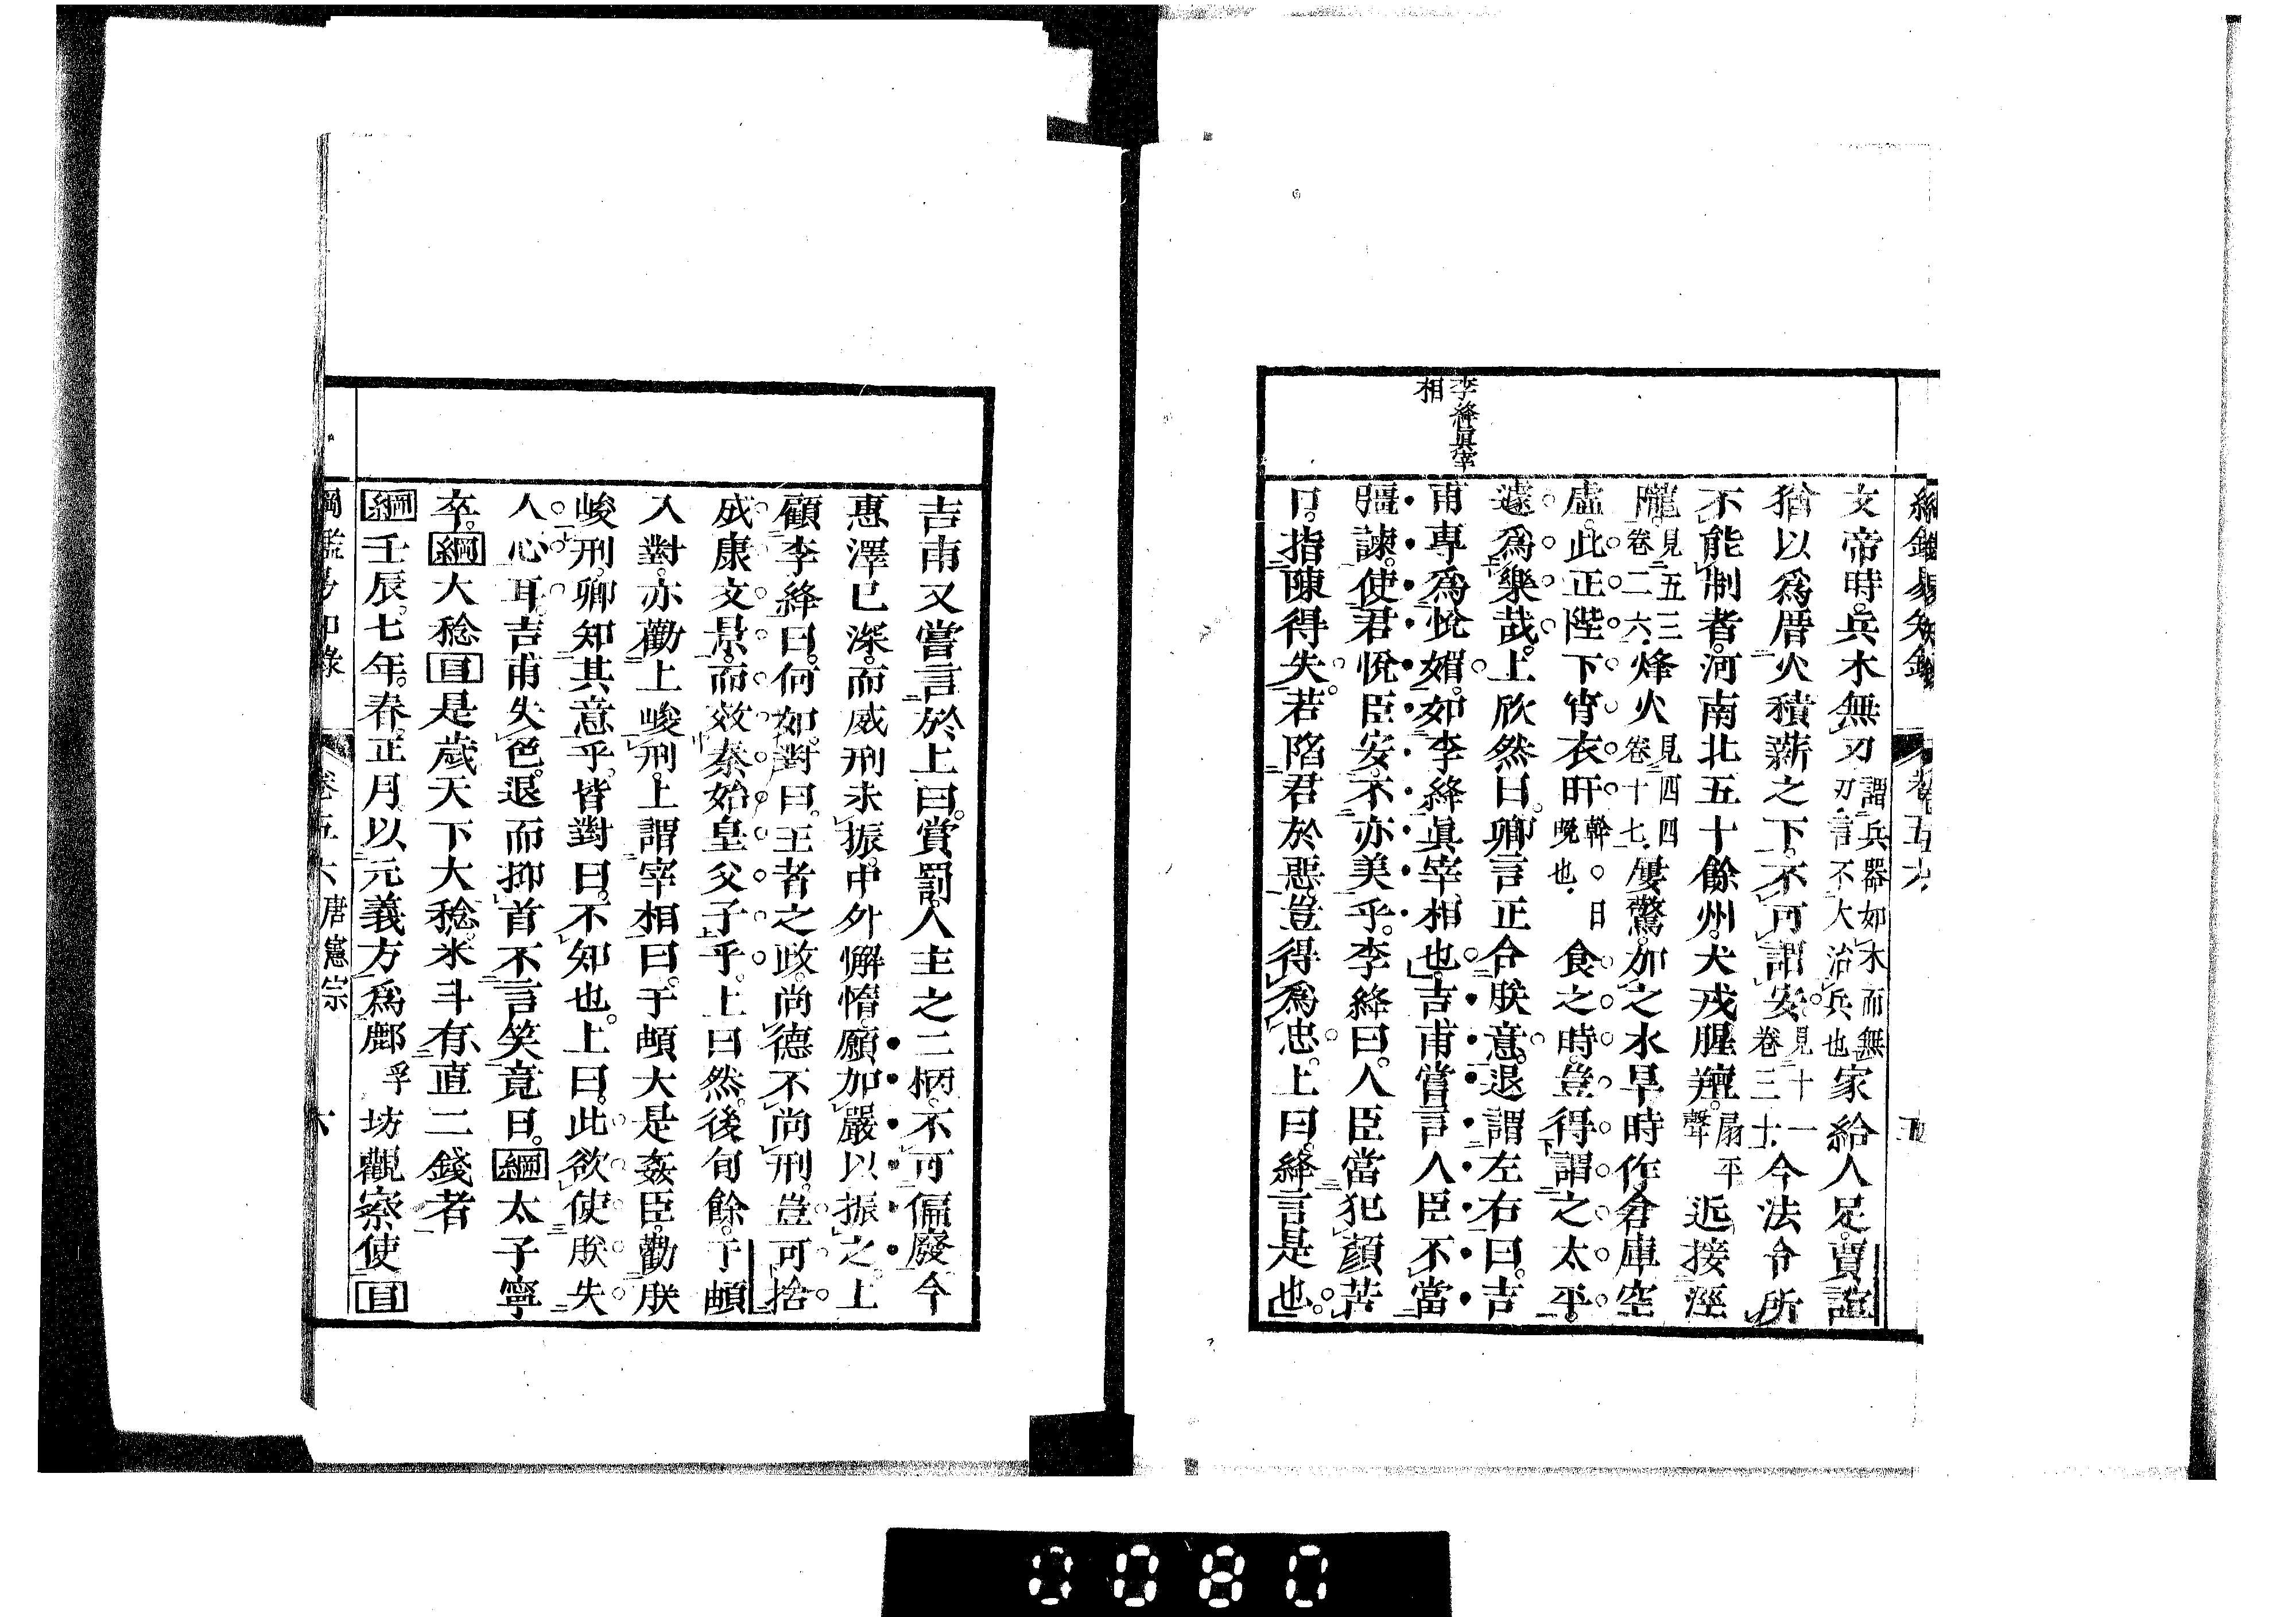 綱鑑易知錄
卷五六
五
李絳眞宰
相
文帝時。兵木無刃謂兵器如木而無刃。言不大治兵也家給人足。賈誼
猶以爲厝火積薪之下。不可謂安。見十一卷三十今法令所
不能制者。河南北五十餘州。犬戎腥羶。扇平聲近接涇
隴。見五三卷二六烽火見四四卷十七屢驚。加之水旱時作。倉庫空
虛。此正陛下宵衣旰幹。日晚也食之時。豈得謂之太平。
遽爲樂哉。上欣然曰。卿言正合朕意。退謂左右曰。吉
甫專爲悅媚。如李絳眞宰相也。吉甫嘗言人臣不當
彊諫。使君悅臣安。不亦美乎。李絳曰。人臣當犯顏苦
口。指陳得失。若陷君於惡。豈得爲忠。上曰。絳言是也。
吉甫又嘗言於上曰。賞罰。人主之二柄。不可偏廢。今
惠澤已深。而威刑未振。中外懈惰。願加嚴以振之。上
顧李絳曰。何如。對曰。王者之政。尚德不尚刑。豈可捨
成康文景。而效秦始皇父子乎。上曰然。後旬餘。于頔
入對。亦勸上峻刑。上謂宰相曰。于頔大是姦臣。勸朕
峻刑。卿知其意乎。皆對曰。不知也。上曰。此欲使朕失
人心耳。吉甫失色。退而抑首不言笑竟日。綱太子寧
卒。綱大稔目是歲天下大稔。米斗有直二錢者
綱壬辰。七年。春。正月。以元義方爲鄜孚坊觀察使目
綱鑑易知錄
卷五六 唐憲宗
六
0080